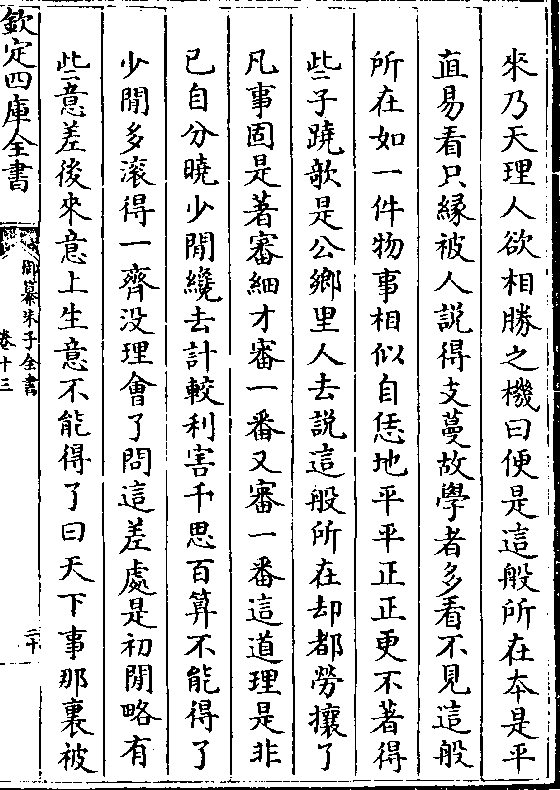 來乃天理人欲相勝之機曰便是這般所在夲是平
直易看只縁被人説得支蔓故學者多看不見這般
所在如一件物事相似自恁地平平正正更不著得
些子蹺欹是公鄉里人去説這般所在却都勞攘了
凡事固是著審細才審一番又審一番這道理是非
已自分曉少閒纔去計較利害千思百算不能得了
少閒多滚得一齊没理會了問這差處是初閒略有
些意差後來意上生意不能得了曰天下事那裏被
欽定四庫全書
御纂朱子全書
卷十三
二十